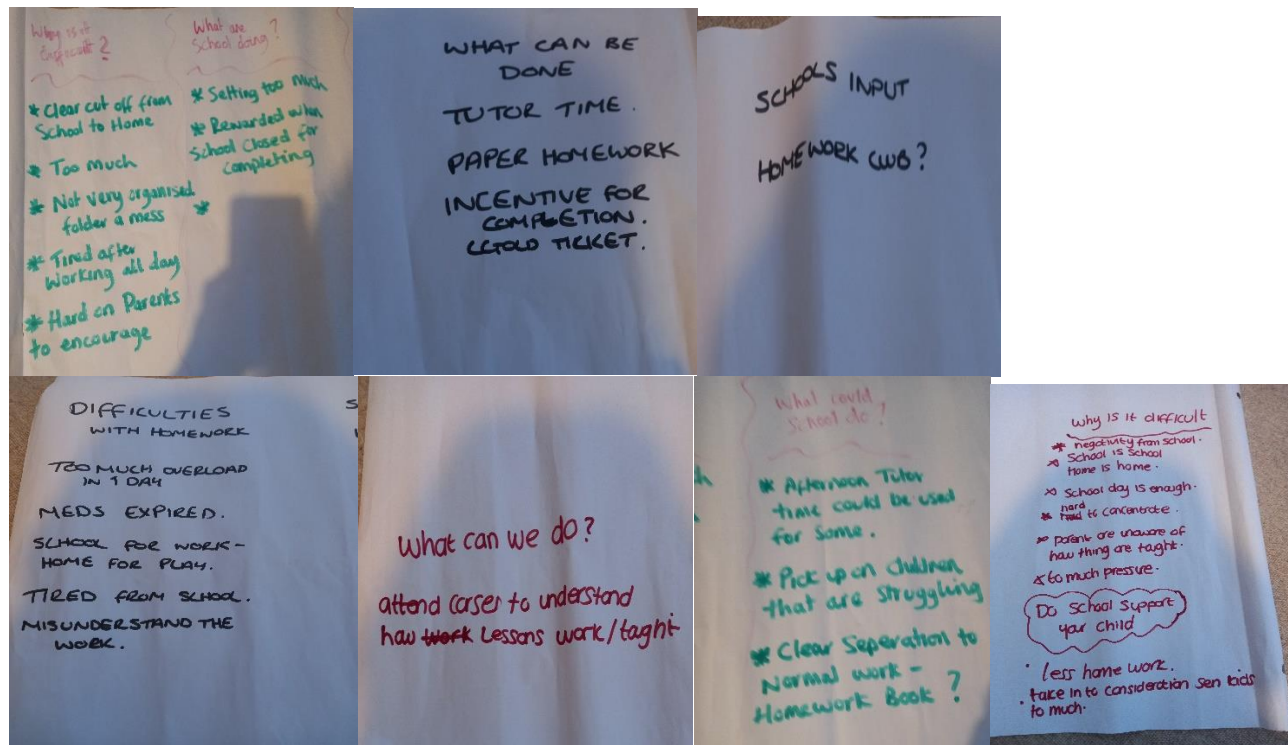 Why is it
Difficult?
* Clear cut off from
School to Home
* Too much
* Not very organised
folder a mess
* Tired after
working all day
* Hard on Parents
to encourage
What are
School doing?
* Setting too much
* Rewarded when
School Closed for
completing
*
WHAT CAN BE
DONE
TUTOR TIME.
PAPER HOMEWORK
INCENTIVE FOR
COMPLETION.
TICKET.
SCHOOLS INPUT
HOMEWORK CLUB?
DIFFICULTIES
WITH HOMEWORK
TOO MUCH OVERLOAD
IN 1 DAY
MEDS EXPIRED.
SCHOOL FOR WORK -
HOME FOR PLAY.
TIRED FROM SCHOOL.
MISUNDERSTAND THE
WORK.
S
What can we do?
attend corses to understand
how work Lessons work/taght
h
What could
School do?
* Afternoon Tutor
time could be used
for Some.
* Pick up on children
that are struggling
* Clear Seperation to
Normal work -
Homework Book ?
why is it difficult
* negativity from school.
* School is School
Home is home.
* School day is enough.
hard
* to concentrate.
* parent are unaware of
how thing are taught.
* to much pressure.
Do School Support
your child
· less home work.
· take in to consideration sen kids
to much.